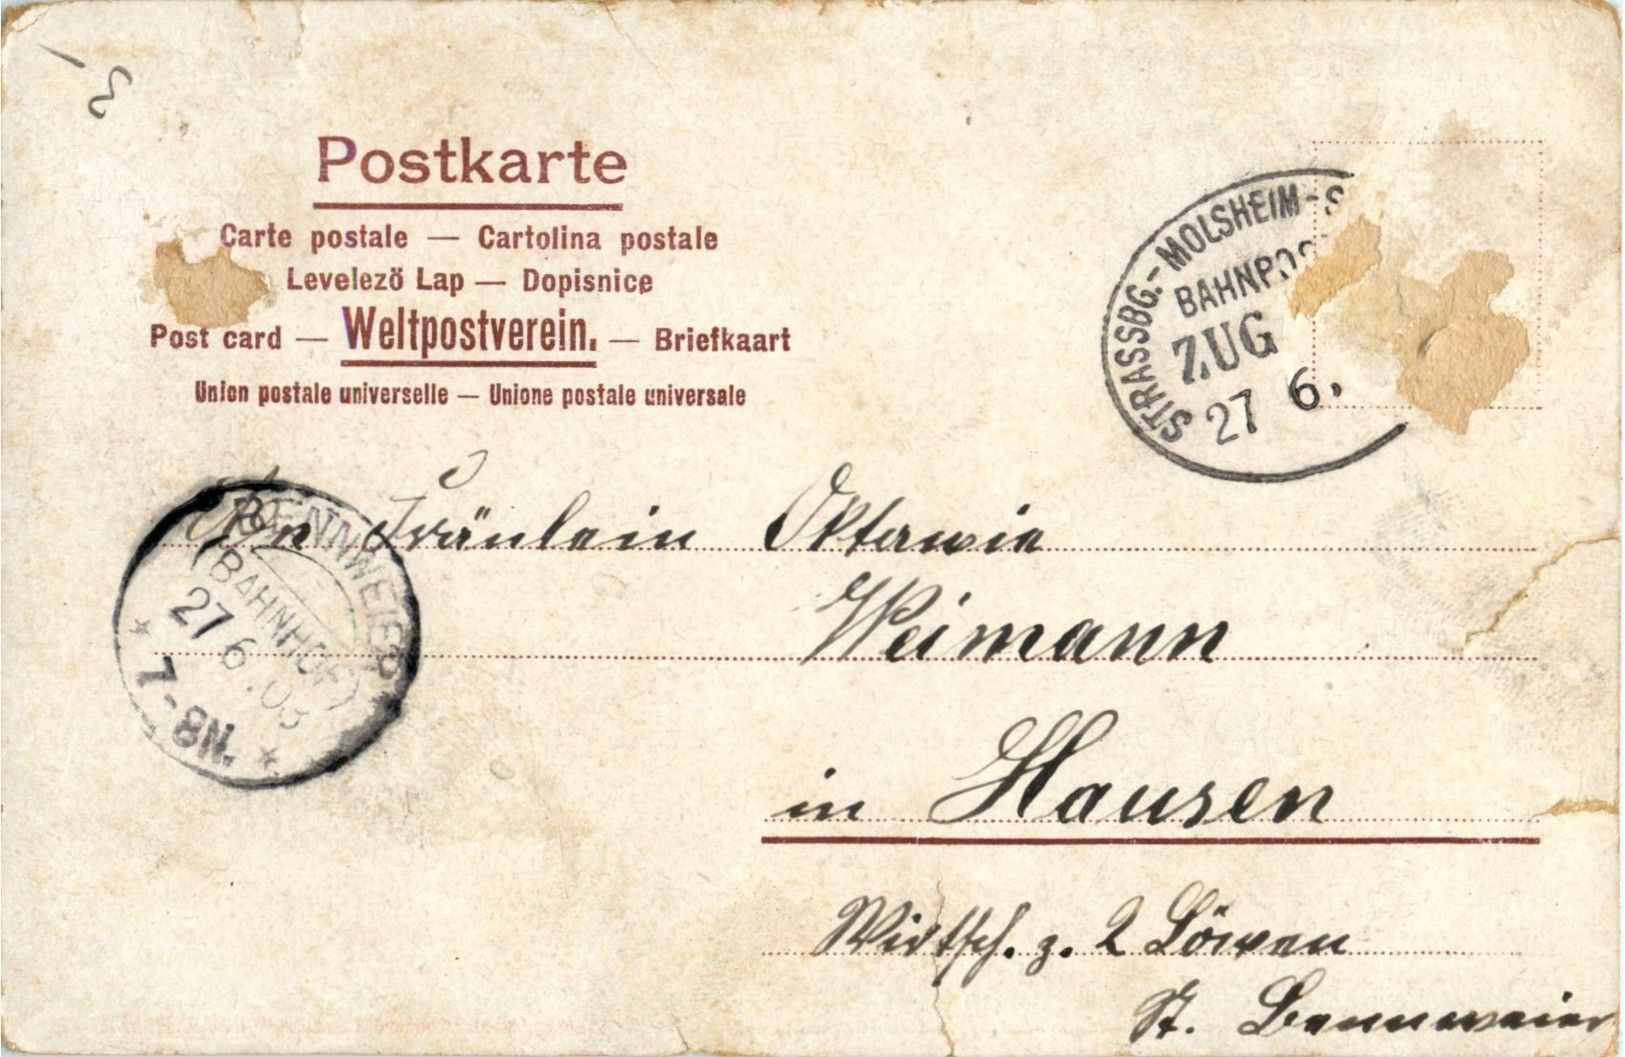 3
Postkarte
Carte postale — Cartolina postale
Levelezö Lap — Dopisnice
Post card — Weltpostverein. — Briefkaart
Union postale universelle — Unione postale universale
STRASSBG.-MOLSHEIM-S
BAHNPOS
ZUG
27 6.
BENNWEIER
(BAHNHOF)
27 6.03
7-8N.
An Fräulein Oktawie
Weimann
in Hausen
Wirtsch. z. 2 Löwen
St. Bennweier